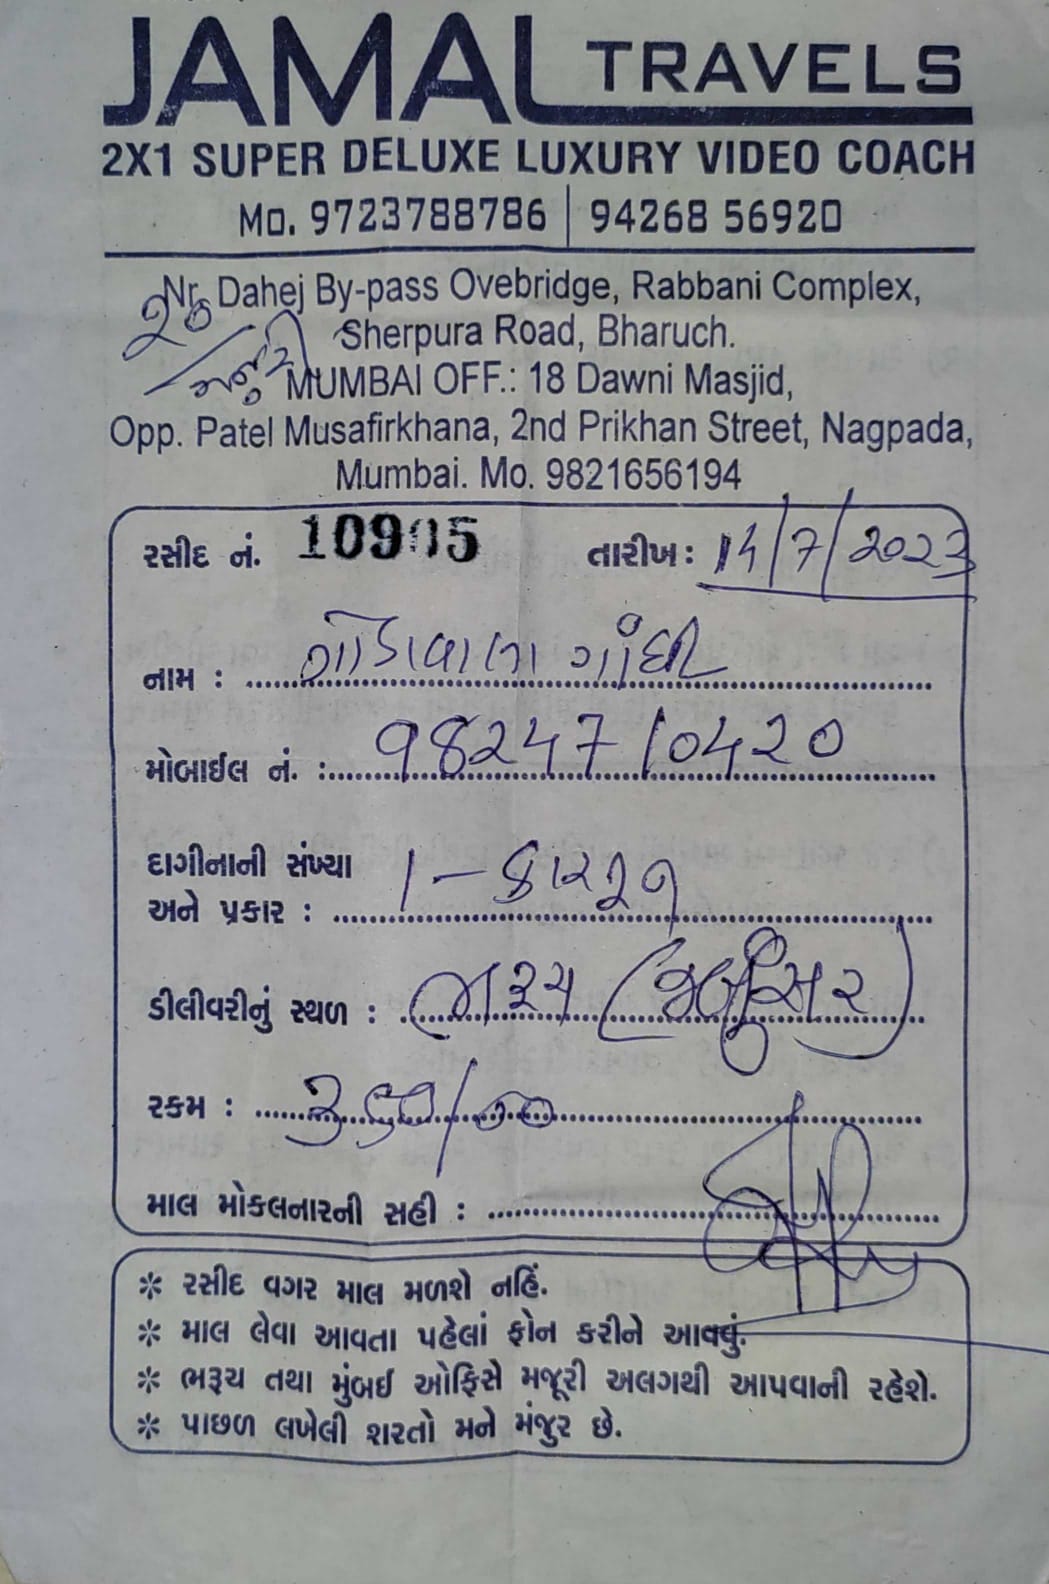 JAMAL TRAVELS
2X1 SUPER DELUXE LUXURY VIDEO COACH
Mo. 9723788786 | 94268 56920
Nr. Dahej By-pass Ovebridge, Rabbani Complex,
Sherpura Road, Bharuch.
MUMBAI OFF.: 18 Dawni Masjid,
Opp. Patel Musafirkhana, 2nd Prikhan Street, Nagpada,
Mumbai. Mo. 9821656194
રસીદ નં. 10905 તારીખ: 14/7/2023
નામ : ગાંધી
મોબાઈલ નં. : 9824710420
દાગીનાની સંખ્યા
અને પ્રકાર : 1 - કારટુન
ડીલીવરીનું સ્થળ : ભરૂચ (જંબુસર)
રકમ :
માલ મોકલનારની સહી :
* રસીદ વગર માલ મળશે નહિં.
* માલ લેવા આવતા પહેલાં ફોન કરીને આવવું.
* ભરૂચ તથા મુંબઈ ઓફિસે મજૂરી અલગથી આપવાની રહેશે.
* પાછળ લખેલી શરતો મને મંજુર છે.